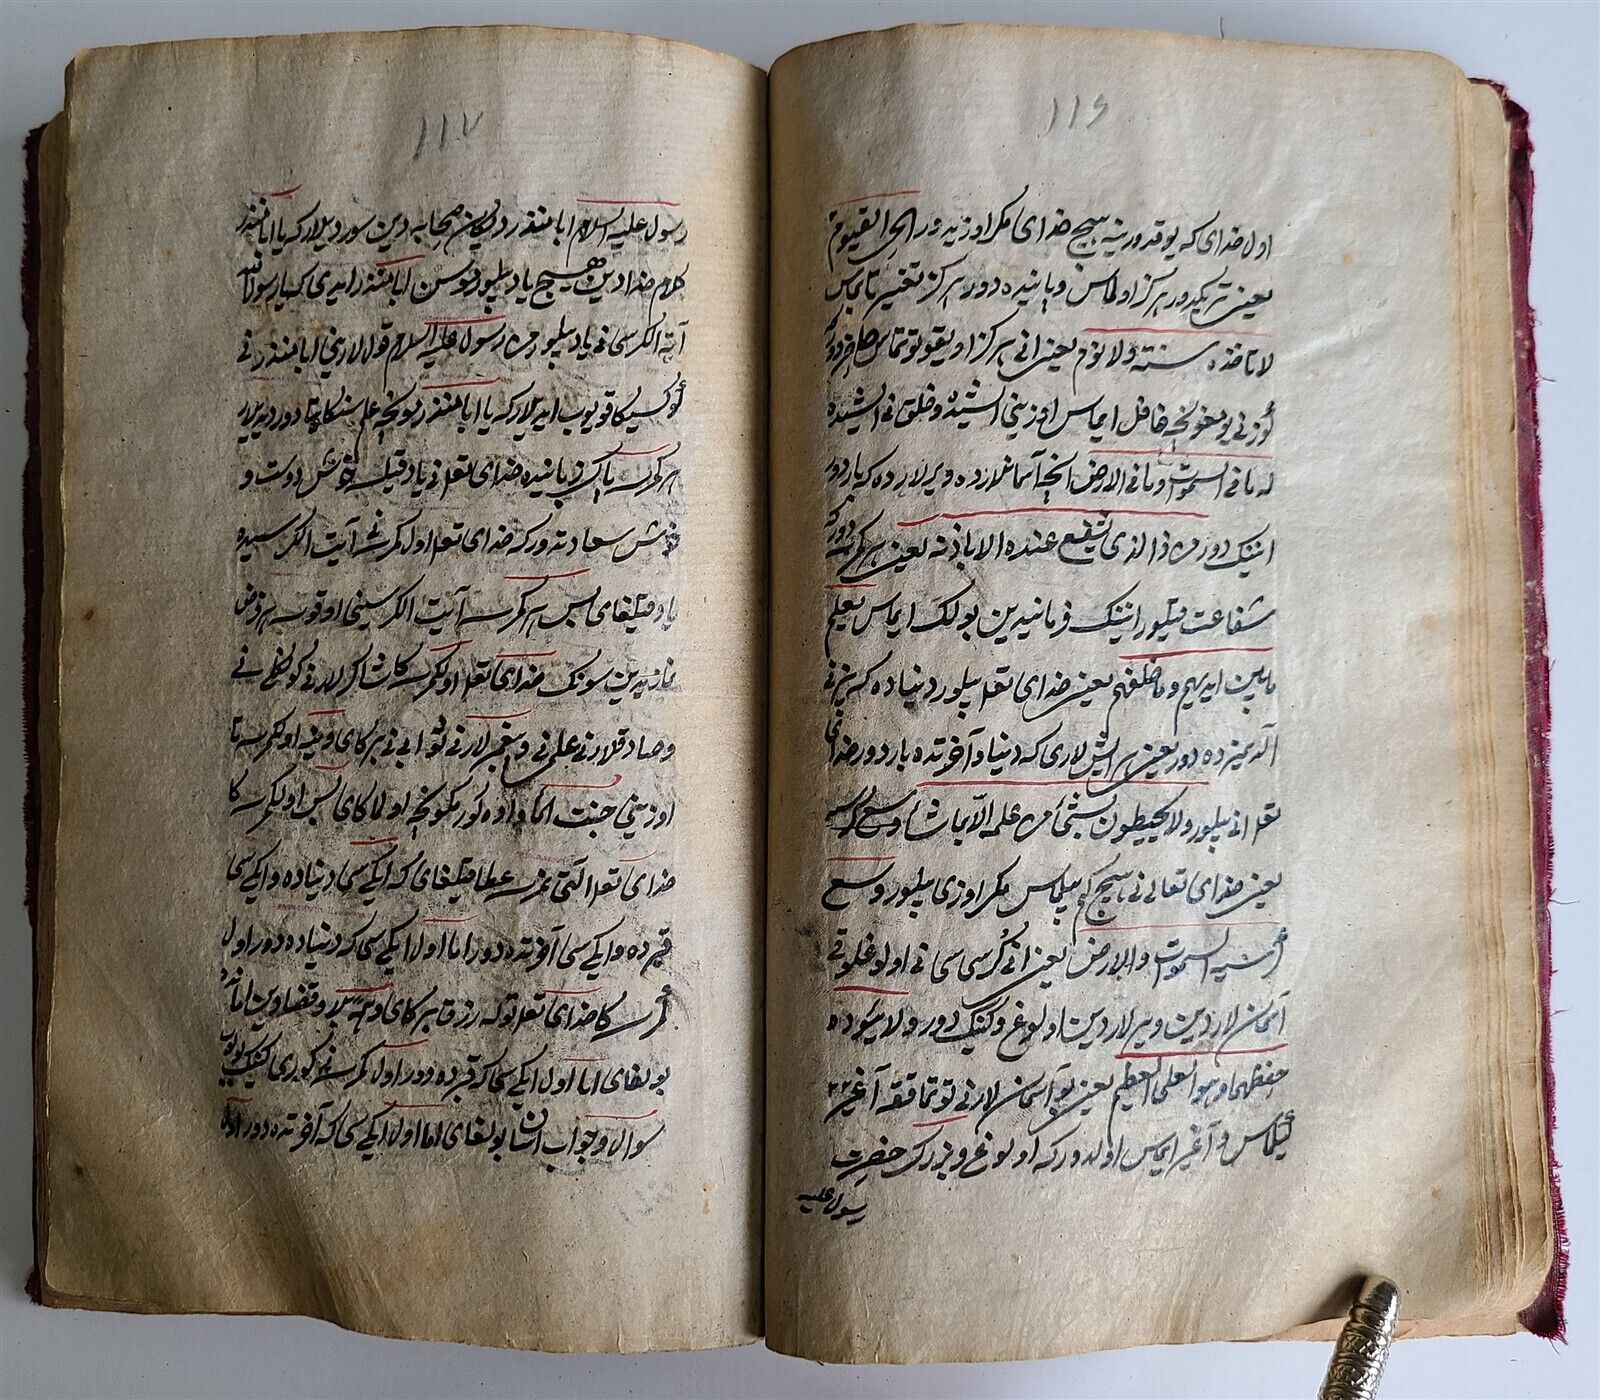 ۱۱۶
اول خدای که یوقدور ینه هیچ خدای مکر اوزیدور الحی القیوم
یعنی تریکدور هرکز اولماس و پاینده دور هرکز تغییر تابماس
لا تاخذه سنة ولا نوم یعنی انی هرکز اویقو توتماس
اوزنی غافل ایماس اوزینی ایشیده و خلق نی ایشیده
له ما فی السموات وما فی الارض آسمانلارده و یرلارده که باردور
انینک دور من ذا الذی یشفع عنده الا باذنه یعنی هر کمرسه دور که
شفاعت قیلور انینک فرمانیدین بولک ایماس یعلم
ما بین ایدیهم وما خلفهم یعنی خدای تعا بیلور دنیاده که
دور یعنی ایش لاری که دنیا و آخرتده باردور خدای
تعا انی بیلور ولا یحیطون بشیٔ من علمه الا بما شاء وسع کرسیه
یعنی خدای تعالی نی هیچ کم بیلماس مکر اوزی بیلور وسع
کرسیه السموات والارض یعنی انی کرسی سی نی اولوغلوقی
آسمان لاردین و یرلاردین اولوغ و کینک دور ولا یؤده
حفظهما وهو العلی العظیم یعنی بو آسمان لارنی توتماققه آغیر
و آغیر ایماس اولدور که اولوغ و بزرک حضرت
رسول علیه
۱۱۷
رسول علیه السلام ابا منذر دیکان صحابه دین سوردیلار که یا ابا منذر
کلام خدادین هیچ یاد بیلورموسن ابا منذر ایدی که یا رسول الله
آیة الکرسی نی یاد بیلورمن رسول علیه السلام قول لارنی ابا منذر نی
کوکسیکا قویوب ایدیلار که یا ابا منذر علم سنکا
هر کمرسه خدای تعا نی یاد قیلسه خوش دوست و
خوش سعادتدور که خدای تعا اول کمرسه نی آیت الکرسیده
یاد قیلغای بس هر کمرسه آیت الکرسینی اوقوسه هر فرض
نمازیدین سونک خدای تعا اول کمرسه کا شاکرلارنی کونکلی نی
و صادقلارنی علمی نی و پیغمبرلارنی ثوابی نی برکای وینه اول کمرسه نا
اوزینی جنت الماواده کورمکونجه اولماکای بس اول کمرسه کا
خدای تعا التی نرسه عطا قیلغای که ایکی سی دنیاده و ایکی سی
قبرده و ایکی سی آخرتده دور اما اول ایکی سی که دنیاده دور اول
کمرسه کا خدای تعا رزق برکای وینه بلا و قضادین امان
بولغای اما اول ایکی سی که قبرده دور اول کمرسه نی کوری کینک بولوب
سوال و جواب آسان بولغای اما اول ایکی سی که آخرتده دور اول